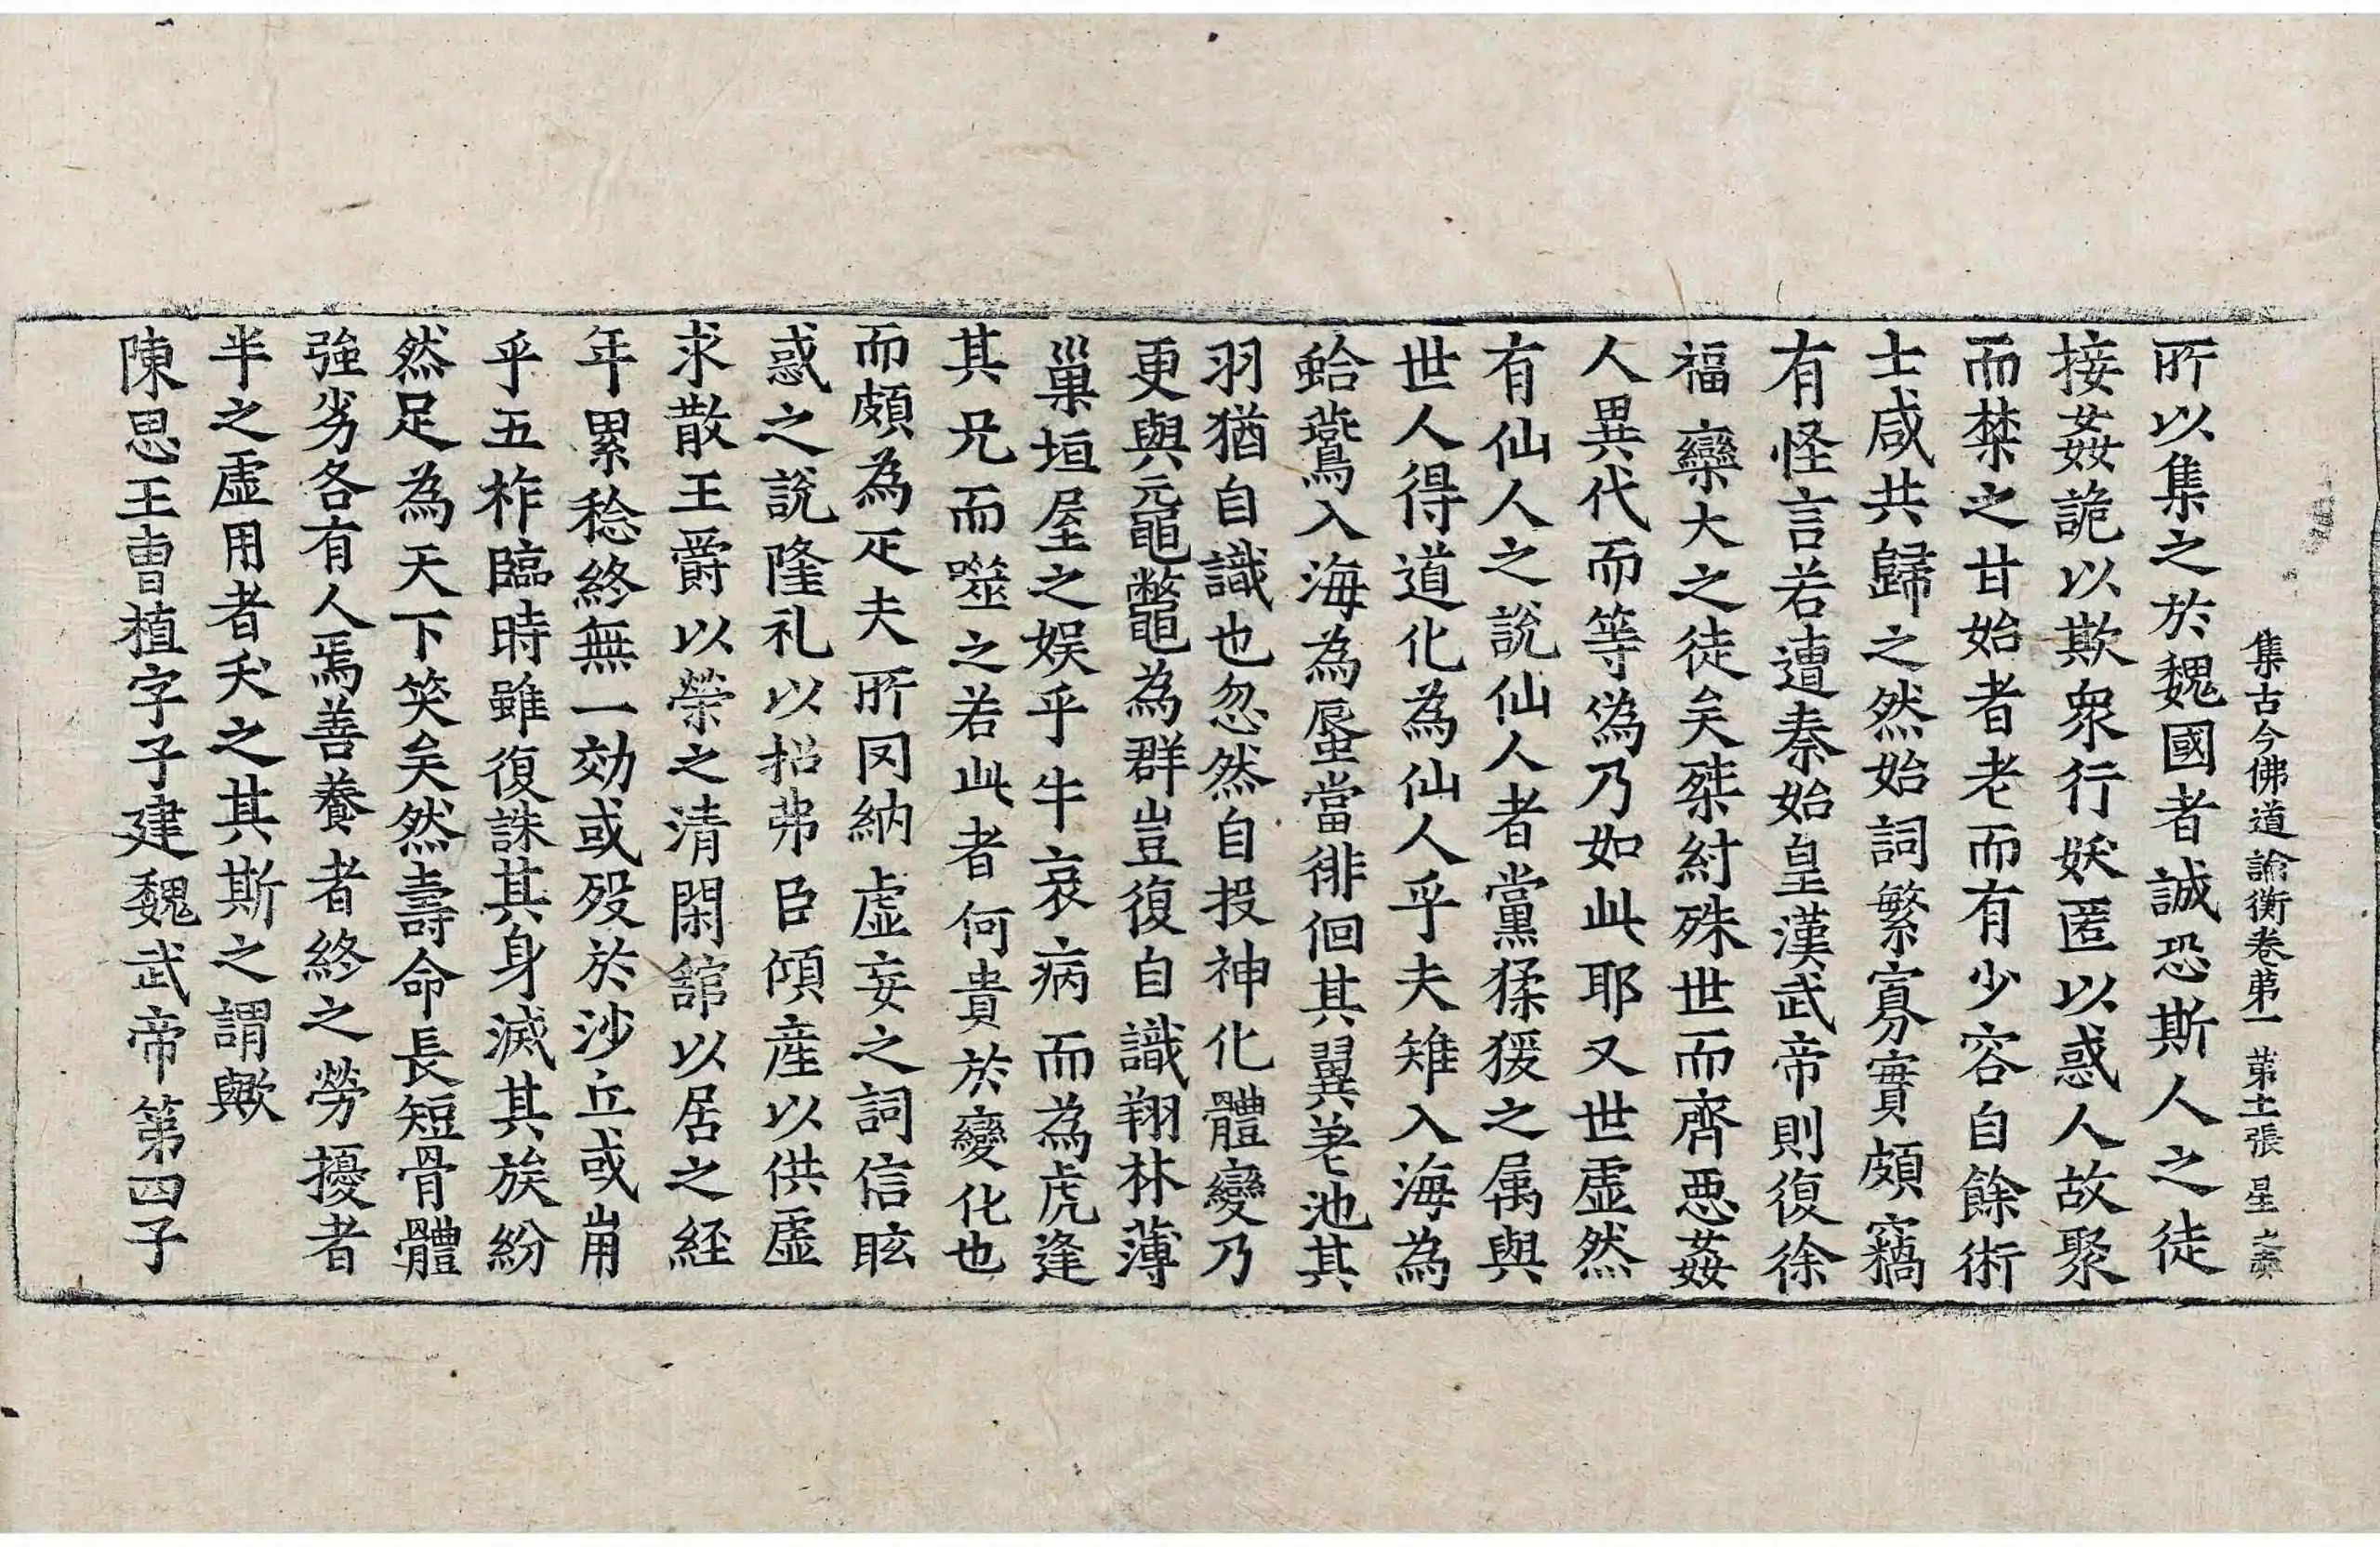 集古今佛道論衡卷第一 第十二張 星
所以集之於魏國者誠恐斯人之徒
接姦詭以欺衆行妖匿以惑人故聚
而禁之甘始者老而有少容自餘術
士咸共歸之然始詞繁寡實頗竊
有怪言若遭秦始皇漢武帝則復徐
福欒大之徒矣桀紂殊世而齊惡姦
人異代而等偽乃如此耶又世虛然
有仙人之說仙人者黨猱猨之属與
世人得道化為仙人乎夫雉入海為
蛤鷰入海為蜃當徘徊其翼差池其
羽猶自識也忽然自投神化體變乃
更與黿鼈為群豈復自識翔林薄
巢垣屋之娛乎牛哀病而為虎逢
其兄而噬之若此者何貴於變化也
而頗為疋夫所罔納虛妄之詞信眩
惑之說隆礼以招弗臣傾產以供虛
求散王爵以榮之清閑舘以居之経
年累稔終無一効或歿於沙丘或崩
乎五柞臨時雖復誅其身滅其族紛
然足為天下笑矣然壽命長短骨體
強劣各有人焉善養者終之勞擾者
半之虛用者夭之其斯之謂歟
陳思王曺植字子建魏武帝第四子